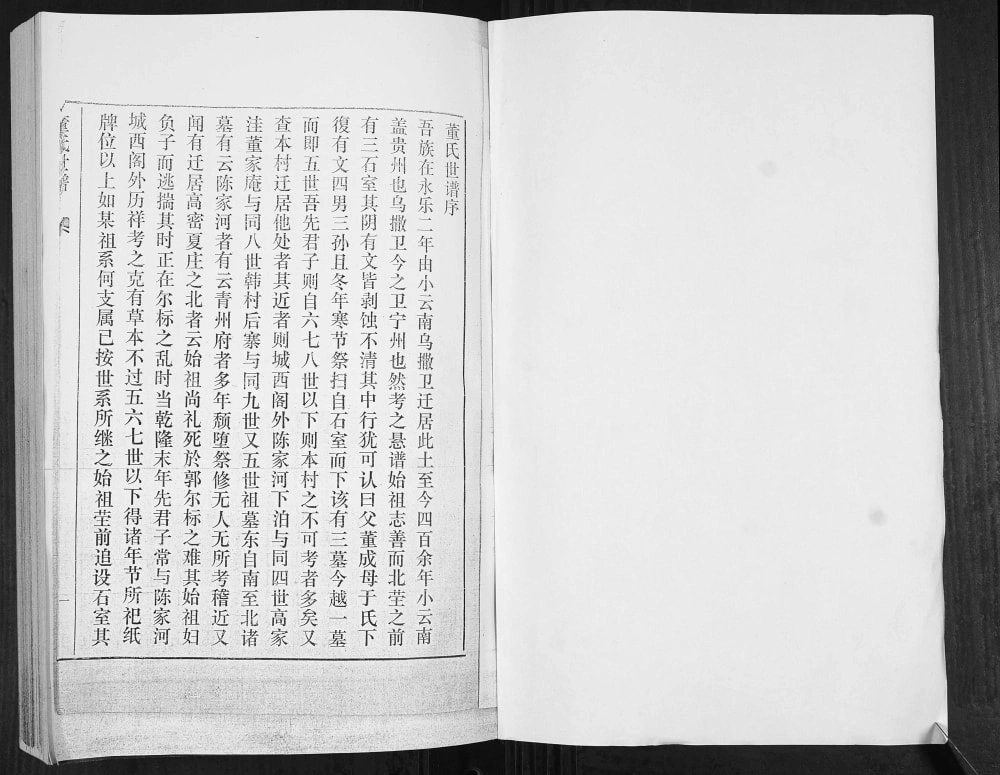 董氏世谱序
吾族在永乐二年由小云南乌撒卫迁居此土至今四百余年小云南
盖贵州也乌撒卫今之卫宁州也然考之悬谱始祖志善而北茔之前
有三石室其阴有文皆剥蚀不清其中行犹可认曰父董成母于氏下
復有文四男三孙且冬年寒节祭扫自石室而下该有三墓今越一墓
而即五世吾先君子则自六七八世以下则本村之不可考者多矣又
查本村迁居他处者其近者则城西阁外陈家河下泊与同四世高家
洼董家庵与同八世韩村后寨与同九世又五世祖墓东自南至北诸
墓有云陈家河者有云青州府者多年颓堕祭修无人无所考稽近又
闻有迁居高密夏庄之北者云始祖尚礼死於郭尔标之难其始祖妇
负子而逃揣其时正在尔标之乱时当乾隆末年先君子常与陈家河
城西阁外历祥考之克有草本不过五六七世以下得诸年节所祀纸
牌位以上如某祖系何支属已按世系所继之始祖茔前追设石室其
董氏世谱
一